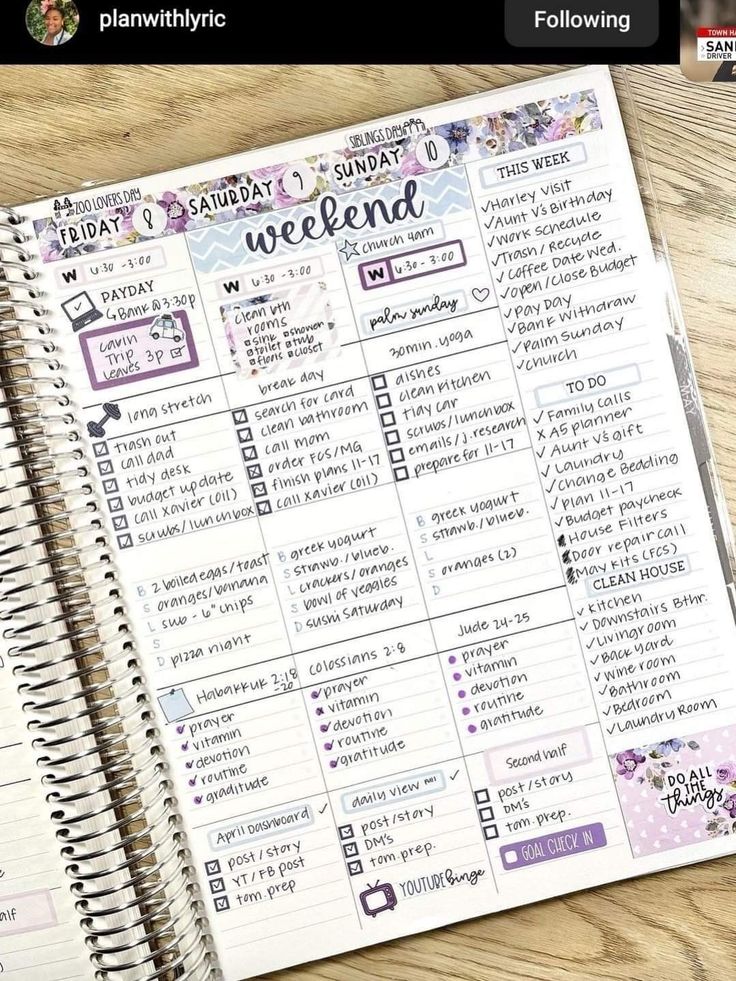 planwithlyric
Following
TOWN HA
SAN
DRIVER
ZOO LOVERS DAY
FRIDAY 8
W 6:30 - 3:00
PAYDAY
↳ Bank @ 3:30p
Cavin
Trip
Leaves 3p
long stretch
trash out
call dad
tidy desk
budget update
call xavier (011)
scrubs/lunchbox
B 2 boiled eggs/toast
S oranges/banana
L sub - 6" chips
S
D pizza night
Habakkuk 2:18
-20
prayer
vitamin
devotion
routine
graditude
April Dashboard
post/story
YT/FB post
tom. prep
SATURDAY 9
weekend
W 6:30 - 3:00
Clean bth
rooms
sink shower
toilet tub
floors closet
break day
search for card
clean bathroom
call mom
order FCS/MG
finish plans 11-17
call xavier (011)
B greek yogurt
S strawb./blueb.
L crackers/oranges
S bowl of veggies
D sushi Saturday
Colossians 2:8
prayer
vitamin
devotion
routine
gratitude
daily view
post/story
DM's
tom. prep.
YOUTUBE binge
SIBLINGS DAY
SUNDAY 10
church 9am
W 6:30 - 3:00
palm sunday
30min. yoga
dishes
clean kitchen
tidy car
scrubs/lunchbox
emails/j. research
prepare for 11-17
B greek yogurt
S strawb./blueb.
L
S oranges (2)
D
Jude 24-25
prayer
vitamin
devotion
routine
gratitude
Second half
post/story
DM's
tom. prep.
GOAL CHECK IN
THIS WEEK
Harley Visit
Aunt V's Birthday
Work Schedule
Trash/Recycle
Coffee Date Wed.
Open/Close Budget
Pay Day
Bank Withdraw
Palm Sunday
church
TO DO
Family Calls
x A5 planner
Aunt V's gift
Laundry
Change Bedding
Plan 11-17
Budget paycheck
House Filters
Door repair call
May Kits (FCS)
CLEAN HOUSE
Kitchen
Downstairs Bthr.
Livingroom
Back yard
Wine room
Bathroom
Bedroom
Laundry Room
DO ALL
THE
things
alf